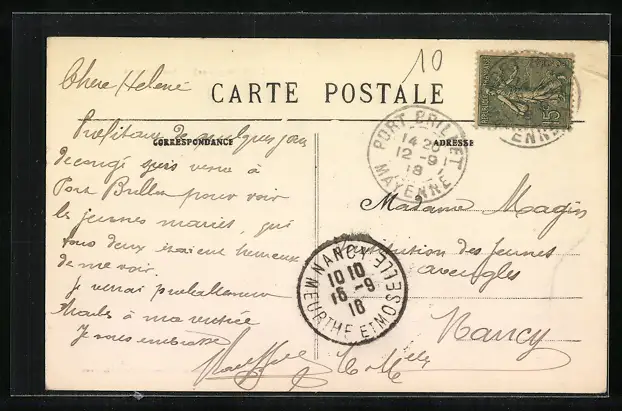 10
Chère Hélène
CARTE POSTALE
CORRESPONDANCE
ADRESSE
Profitant de quelques jours
de congé suis venu à
Port Brillet pour voir
les jeunes mariés, qui
tous deux étaient heureux
de me voir.
Je verrai probablement
à ma rentrée
Je vous embrasse
PORT BRILLET
14 20
12 -9
18
MAYENNE
15
NANCY
10 10
16 -9
18
MEURTHE ET MOSELLE
Madame Magin
Institution des Jeunes
aveugles
Nancy